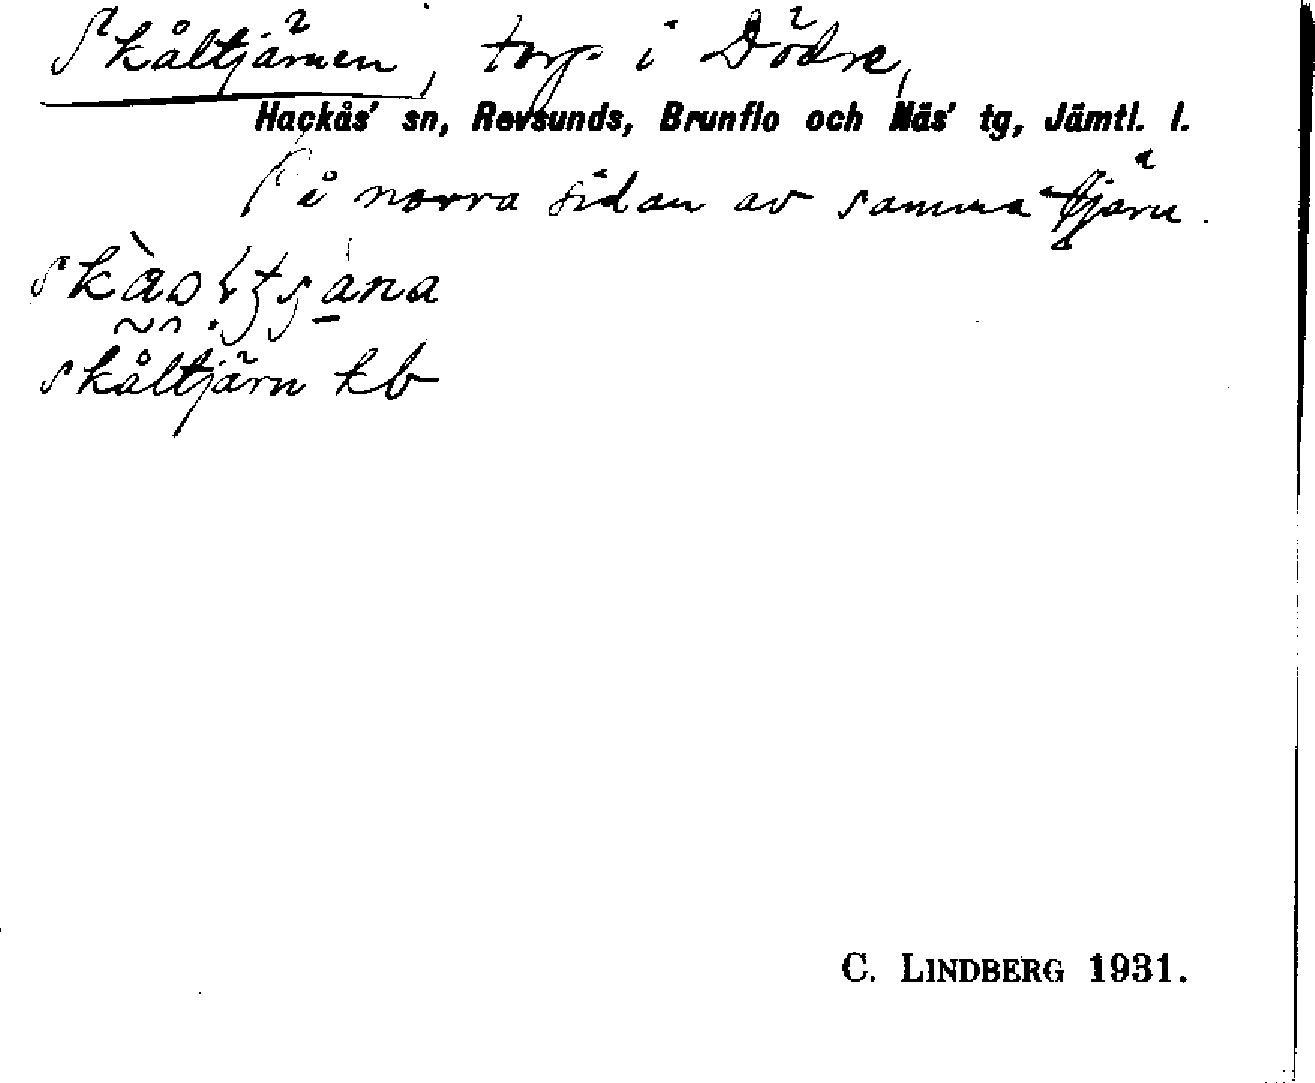 Skåltjärnen, torp i Dödre,
Hackås' sn, Revsunds, Brunflo och Näs' tg, Jämtl. l.
På norra sidan av samma tjärn.
skåltjärn kb
C. LINDBERG 1931.